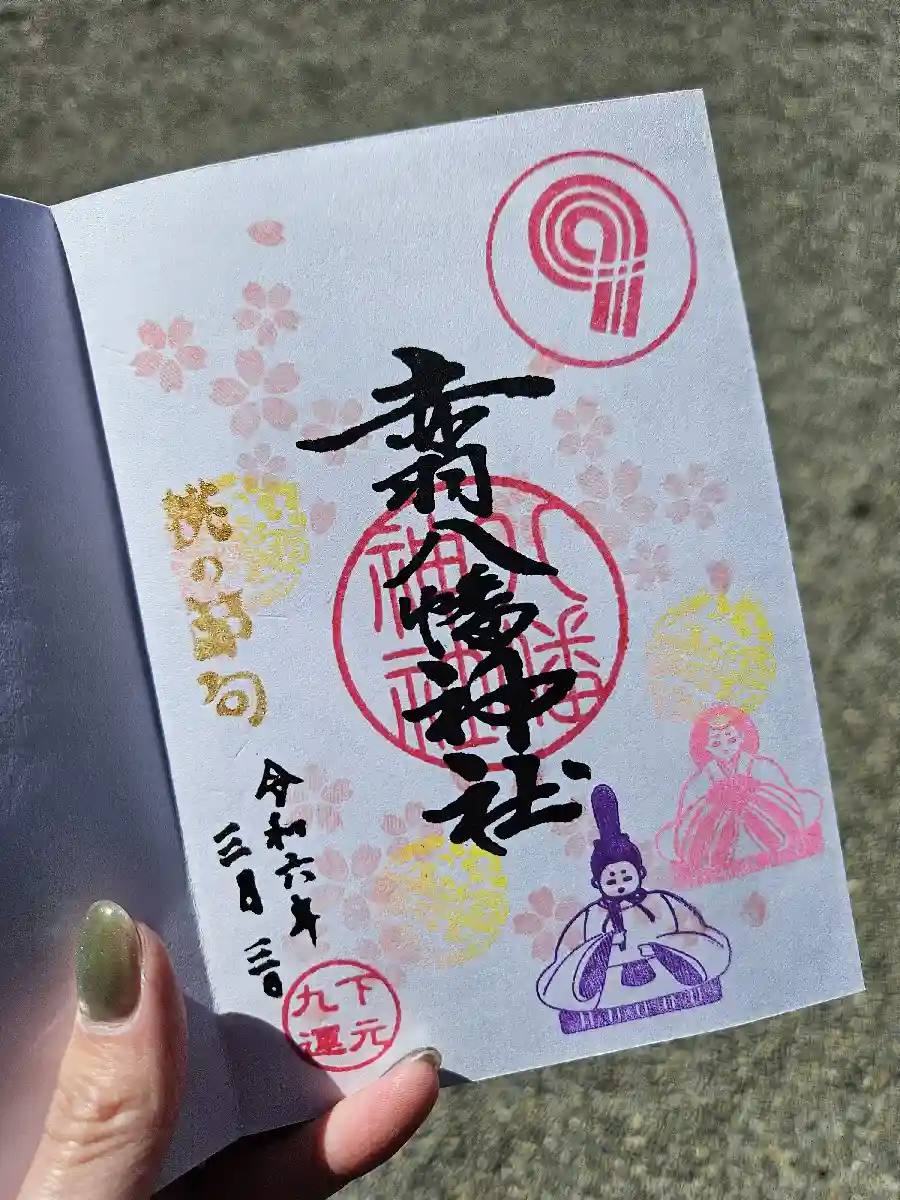 9
赤羽八幡神社
八幡
神社
桃の節句
令和六年
三月三日
下元
九運